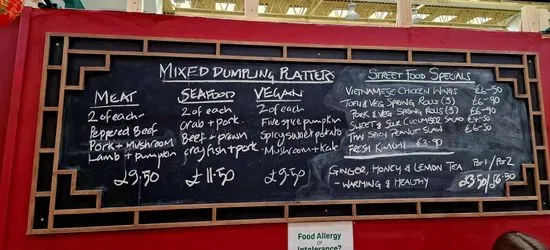 MIXED DUMPLING PLATTERS
MEAT
2 of each
Peppered Beef
Pork + Mushroom
Lamb + pumpkin
£9.50
SEAFOOD
2 of each
Crab + pork
Beef + prawn
crayfish + pork
£11.50
VEGAN
2 of each
Five spice pumpkin
Spicy sweet potato
Mushroom + kale
£9.50
STREET FOOD SPECIALS
VIETNAMESE CHICKEN WINGS £6-50
TOFU & VEG SPRING ROLLS (3) £6-90
PORK & VEG SPRING ROLLS (3) £6-90
SWEET & SOUR CUCUMBER SALAD
THAI SPICY PEANUT SLAW £6-50
FRESH KIMCHI £3-90
GINGER, HONEY & LEMON TEA Por 1 / Por 2
- WARMING & HEALTHY £3.50/£6.50
Food Allergy
or
Intolerance?